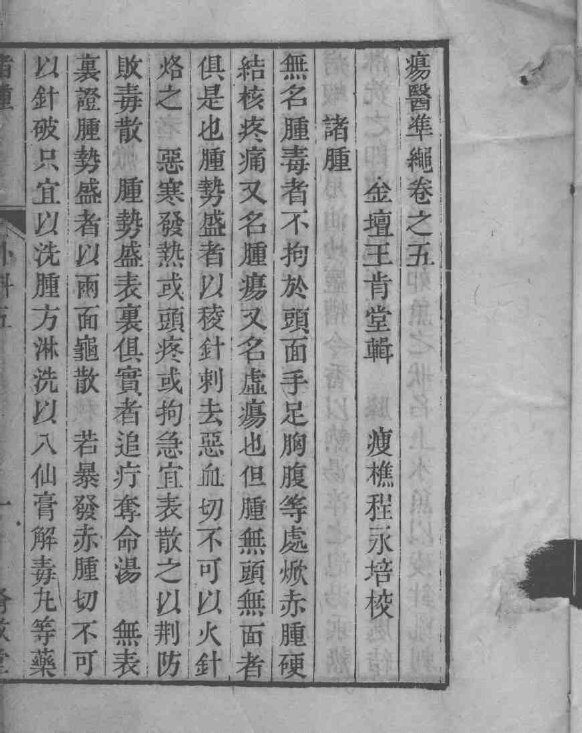 瘍醫準繩卷之五
金壇王肯堂輯　瘦樵程永培校
諸腫
無名腫毒者不拘於頭面手足胸腹等處焮赤腫硬
結核疼痛又名腫瘍又名虛瘍也但腫無頭無面者
俱是也腫勢盛者以稜針刺去惡血切不可以火針
烙之　惡寒發熱或頭疼或拘急宜表散之以荆防
敗毒散　腫勢盛表裏俱實者追疔奪命湯　無表
裏證腫勢盛者以兩面龜散　若暴發赤腫切不可
以針破只宜以洗腫方淋洗以入仙膏解毒丸等藥
諸腫　外科五　一